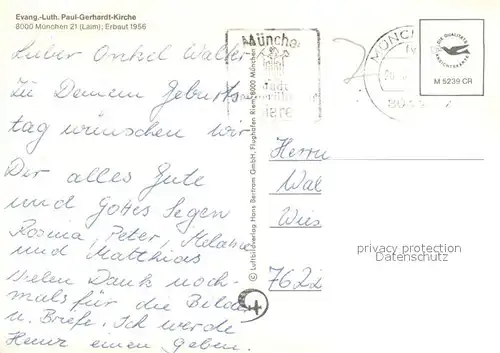 Evang.-Luth. Paul-Gerhardt-Kirche
8000 München 21 (Laim); Erbaut 1956
Lieber Onkel Walter
Zu Deinem Geburts
tag wünschen wir
Dir alles Gute
und Gottes Segen
Rosina, Peter, Melanie
und Matthias
Vielen Dank noch-
mals für die Bilder
u. Briefe. Ich werde
Heinz einen geben.
© Luftbildverlag Hans Bertram GmbH, Flughafen Riem, 8000 München
München
MÜNCH
DIE QUALITÄTS
ANSICHTSKARTE
M 5239 CR
Herrn
Wal
Wies
7622
privacy protection
Datenschutz